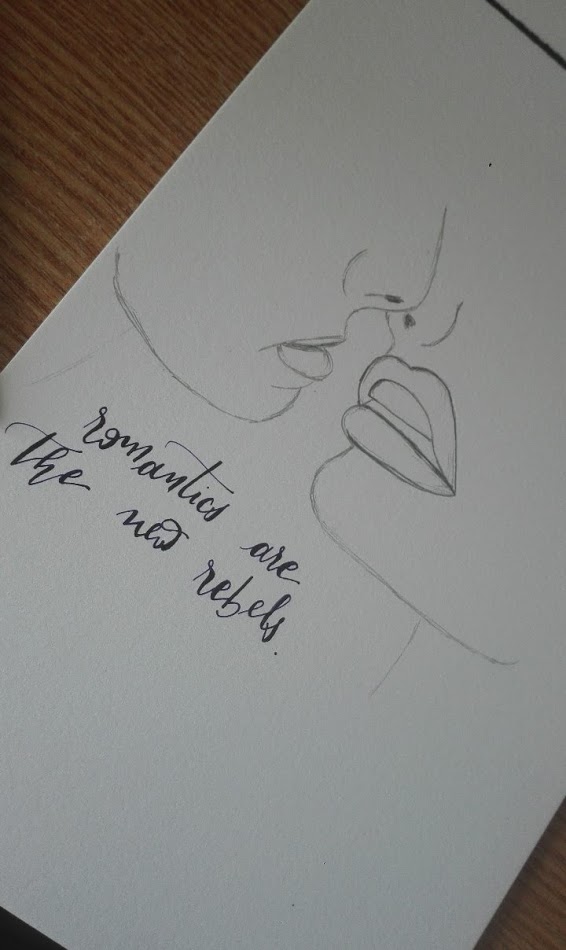 romantics are
the new rebels.